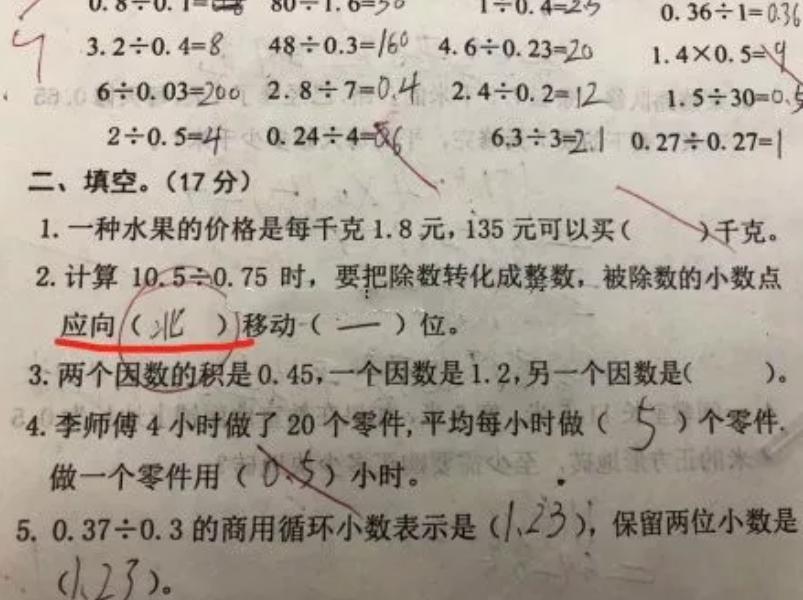 0.8÷0.1= 80÷1.6=50 1÷0.4=25 0.36÷1=0.36
3.2÷0.4=8 48÷0.3=160 4.6÷0.23=20 1.4×0.5=
6÷0.03=200 2.8÷7=0.4 2.4÷0.2=12 1.5÷30=0.5
2÷0.5=4 0.24÷4=0.6 6.3÷3=2.1 0.27÷0.27=1
二、填空。(17分)
1. 一种水果的价格是每千克1.8元,135元可以买( )千克。
2. 计算 10.5÷0.75 时，要把除数转化成整数，被除数的小数点
应向(北)移动(一)位。
3. 两个因数的积是0.45,一个因数是1.2,另一个因数是( )。
4. 李师傅4小时做了20个零件,平均每小时做(5)个零件.
做一个零件用(0.5)小时。
5. 0.37÷0.3的商用循环小数表示是(1.23)，保留两位小数是
(1.23)。